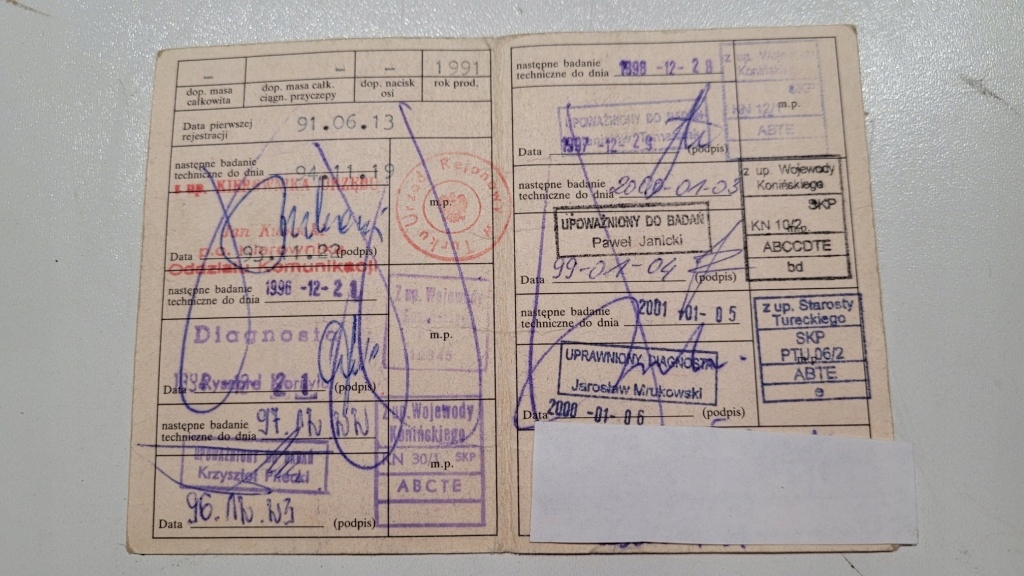 – – – 1991
dop. masa całkowita dop. masa całk. ciągn. przyczepy dop. nacisk osi rok prod.
Data pierwszej rejestracji 91.06.13
następne badanie
techniczne do dnia 94.11.19
z up. KIEROWNIKA URZĘDU
m.p.
Urząd Rejonowy w Turku
Jan
p.o. Kierownika
Oddziału Komunikacji
Data (podpis)
następne badanie
techniczne do dnia 1996-12-28
z up. Wojewody
Diagnosta
m.p.
12345
Data 21 (podpis)
następne badanie
techniczne do dnia 97.12.22
z up. Wojewody
Konińskiego
UPOWAŻNIONY DO BADAŃ
Krzysztof
KN 30/1 SKP
m.p.
ABCTE
Data 96.12.23 (podpis)
następne badanie
techniczne do dnia 1998-12-28
z up.
SKP
m.p.
KN 12/1
ABTE
UPOWAŻNIONY DO BADAŃ
Data 1997-12-29 (podpis)
następne badanie
techniczne do dnia 2000-01-03
z up. Wojewody
Konińskiego
SKP
KN 10/2
m.p.
ABCCDTE
bd
UPOWAŻNIONY DO BADAŃ
Paweł Janicki
Data 99-01-04 (podpis)
następne badanie
techniczne do dnia 2001-01-05
z up. Starosty
Tureckiego
SKP
PTU 06/2
m.p.
ABTE
e
UPRAWNIONY DIAGNOSTA
Jarosław Mrukowski
Data 2000-01-06 (podpis)